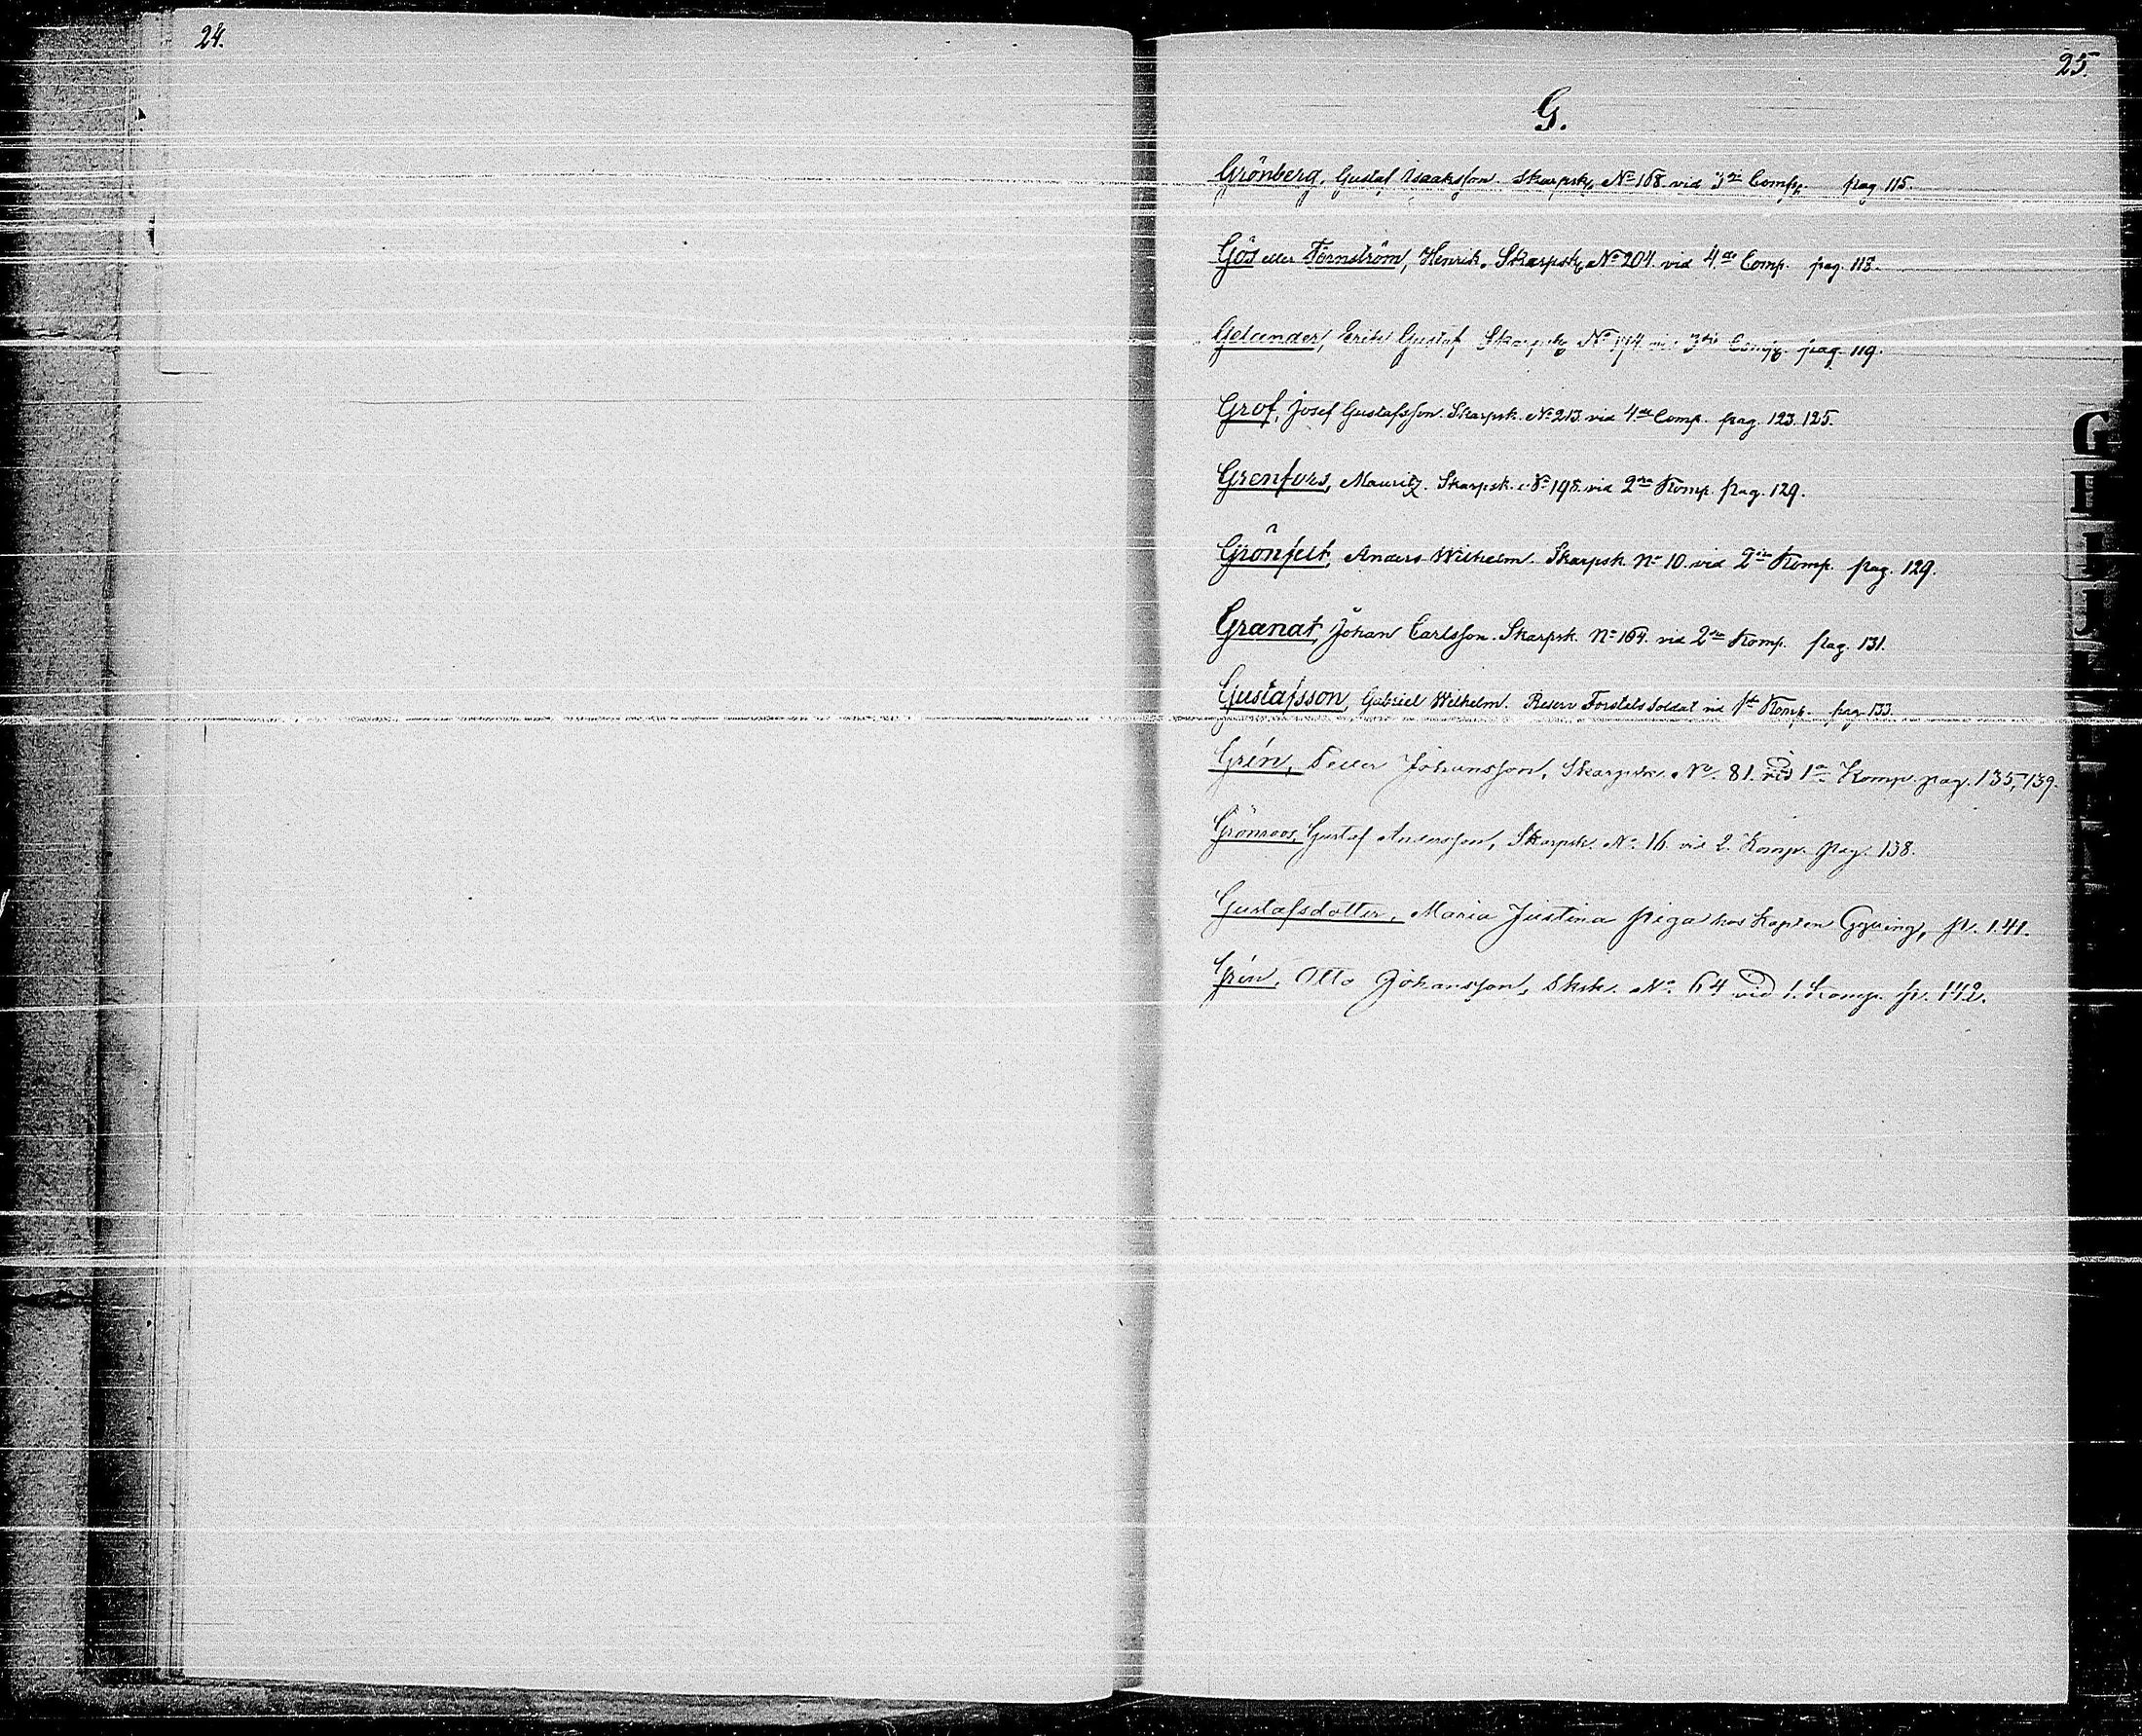 24.
25.
G.
Grönberg, Gustaf Isaaksson. Skarpsk. No 168. vid 3die Comp. pag. 115.
Gös eller Törnström, Henrik. Skarpsk. No 204. vid 4de Comp. pag. 118.
Gelander, Erik Gustaf Skarpsk. No 194 vid 3die Comp. pag. 119.
Grof, Josef Gustafsson. Skarpsk. No 213. vid 4de Comp. pag. 123. 125.
Grenfors, Mauritz. Skarpsk. No 198. vid 2dra Komp. pag. 129.
Grönfelt, Anders Wilhelm. Skarpsk. No 10. vid 2dra Komp. pag. 129.
Granat, Johan Carlsson. Skarpsk. No 164. vid 2dra Komp. pag. 131.
Gustafsson, Gabriel Wilhelm. Reserv Forstels Soldat vid 1sta Komp. pag. 133.
Grén, Johansson, Skarpsk. No. 81. vid 1a Komp. pag. 135, 139.
Grönroos, Gustaf Andersson, Skarpsk. No. 16. vid 2. Komp. pag. 138.
Gustafsdotter, Maria Justina piga hos Kapten p. 141.
Grén, Otto Johansson, Sksk. No. 64 vid 1. Komp. p. 142.
G